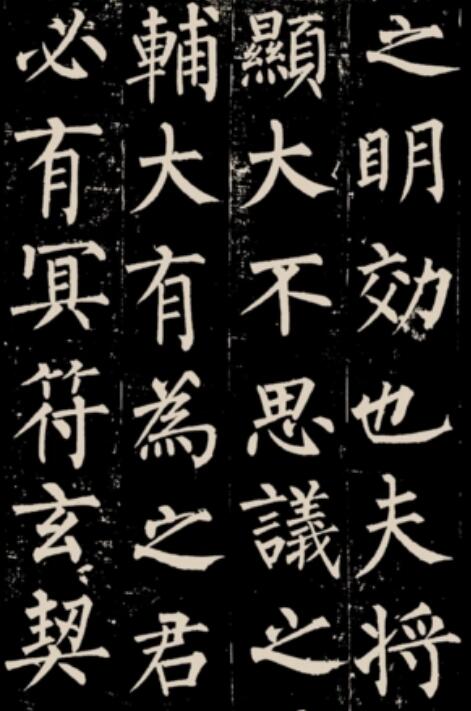 之明効也夫将
顯大不思議之
輔大有為之君
必有冥符玄契